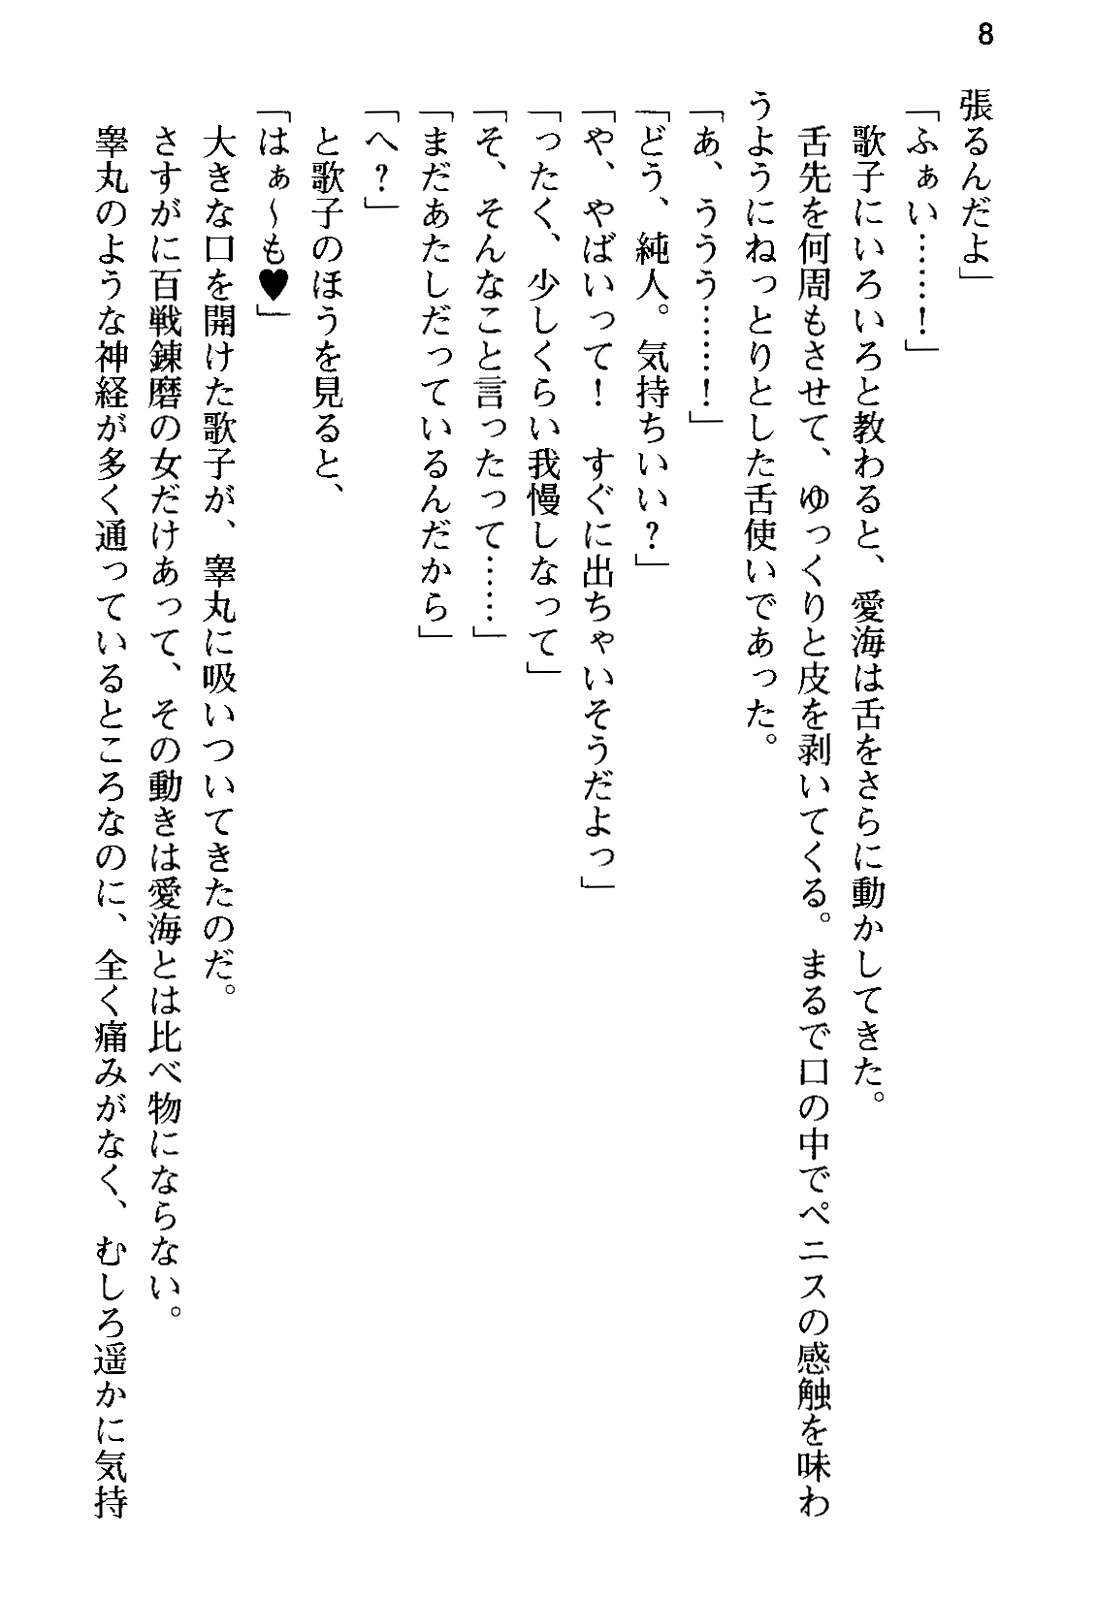 8
張るんだよ」
「ふぁい……！」
歌子にいろいろと教わると、愛海は舌をさらに動かしてきた。
舌先を何周もさせて、ゆっくりと皮を剥いてくる。まるで口の中でペニスの感触を味わ
うようにねっとりとした舌使いであった。
「あ、ううう……！」
「どう、純人。気持ちいい？」
「や、やばいって！　すぐに出ちゃいそうだよっ」
「ったく、少しくらい我慢しなって」
「そ、そんなこと言ったって……」
「まだあたしだっているんだから」
「へ？」
と歌子のほうを見ると、
「はぁ～も♥」
大きな口を開けた歌子が、睾丸に吸いついてきたのだ。
さすがに百戦錬磨の女だけあって、その動きは愛海とは比べ物にならない。
睾丸のような神経が多く通っているところなのに、全く痛みがなく、むしろ遥かに気持